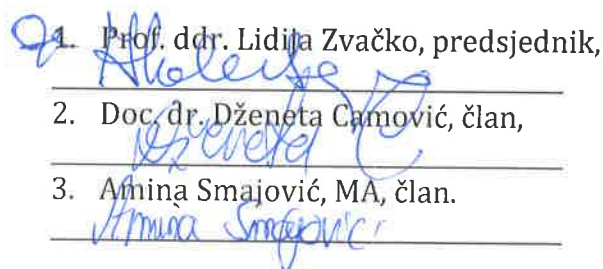 1. Prof. ddr. Lidija Zvačko, predsjednik,
2. Doc. dr. Dženeta Camović, član,
Dženeta C
3. Amina Smajović, MA, član.
Amina Smajović